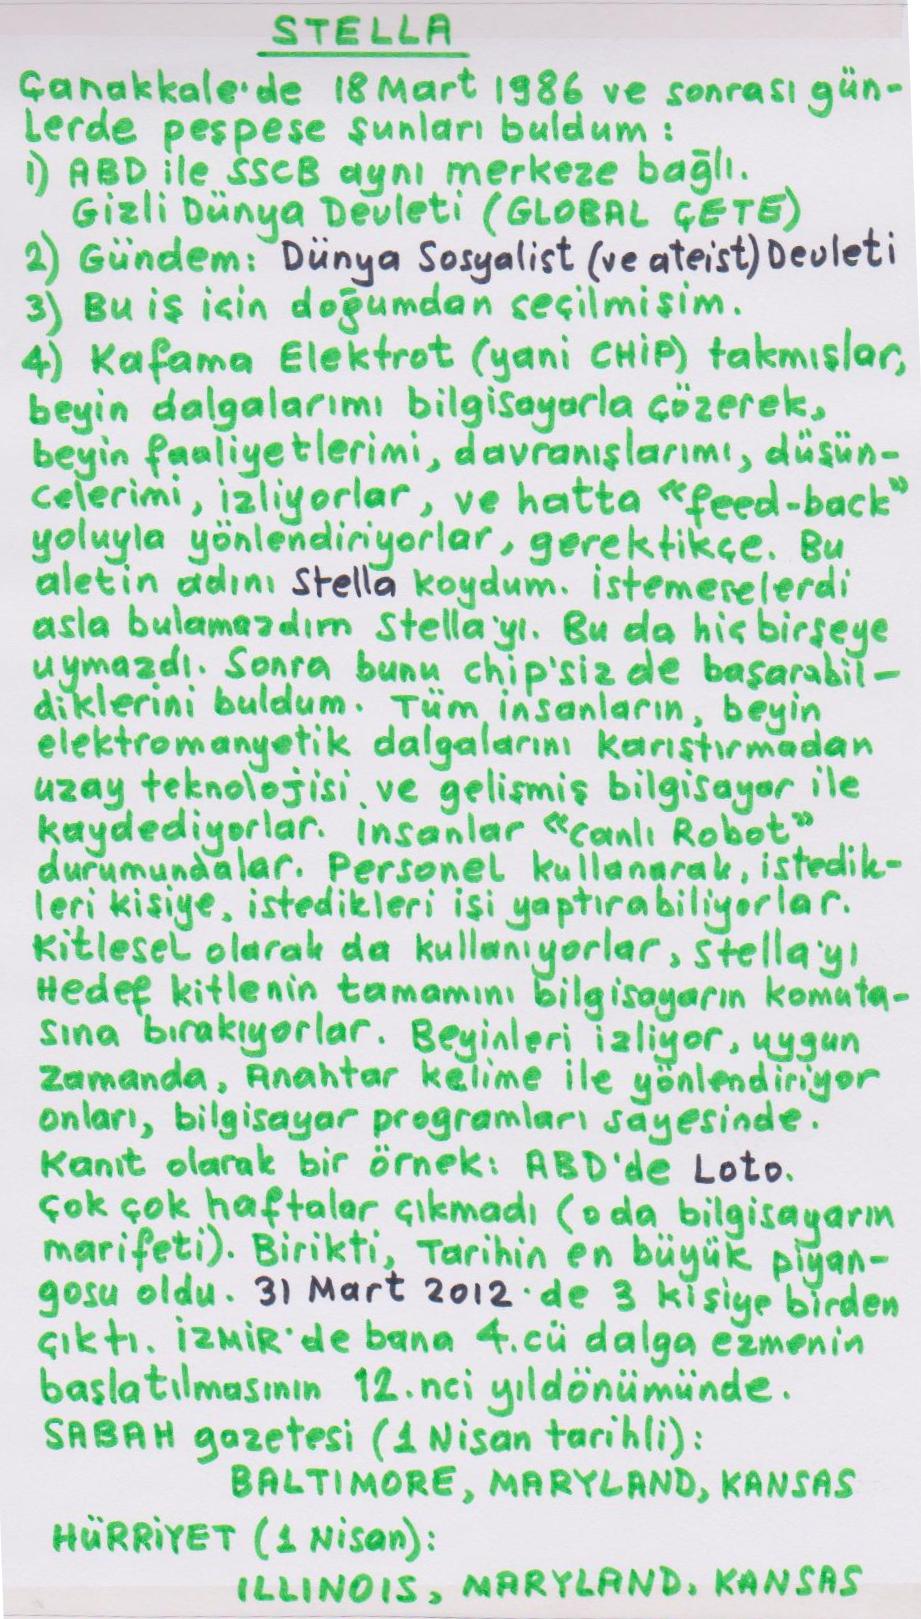 STELLA
Çanakkale'de 18 Mart 1986 ve sonrası gün-
lerde peşpeşe şunları buldum :
1) ABD ile SSCB aynı merkeze bağlı.
Gizli Dünya Devleti (GLOBAL ÇETE)
2) Gündem: Dünya Sosyalist (ve ateist) Devleti
3) Bu iş için doğumdan seçilmişim.
4) Kafama Elektrot (yani CHİP) takmışlar,
beyin dalgalarımı bilgisayarla çözerek,
beyin faaliyetlerimi, davranışlarımı, düşün-
celerimi, izliyorlar, ve hatta “feed-back”
yoluyla yönlendiriyorlar, gerektikçe. Bu
aletin adını Stella koydum. İstemeselerdi
asla bulamazdım Stella'yı. Bu da hiçbirşeye
uymazdı. Sonra bunu chip'siz de başarabil-
diklerini buldum. Tüm insanların, beyin
elektromanyetik dalgalarını karıştırmadan
uzay teknolojisi, ve gelişmiş bilgisayar ile
kaydediyorlar. İnsanlar “canlı Robot”
durumundalar. Personel kullanarak, istedik-
leri kişiye, istedikleri işi yaptırabiliyorlar.
Kitlesel olarak da kullanıyorlar, Stella'yı
Hedef kitlenin tamamını bilgisayarın komuta-
sına bırakıyorlar. Beyinleri izliyor, uygun
zamanda, Anahtar kelime ile yönlendiriyor
onları, bilgisayar programları sayesinde.
Kanıt olarak bir örnek: ABD'de Loto.
Çok çok haftalar çıkmadı (o da bilgisayarın
marifeti). Birikti, Tarihin en büyük piyan-
gosu oldu. 31 Mart 2012'de 3 kişiye birden
çıktı. İZMİR'de bana 4.cü dalga ezmenin
başlatılmasının 12.nci yıldönümünde.
SABAH gazetesi (1 Nisan tarihli):
BALTIMORE, MARYLAND, KANSAS
HÜRRİYET (1 Nisan):
ILLINOIS, MARYLAND, KANSAS